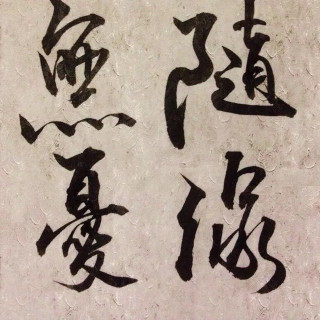 隨緣
無憂